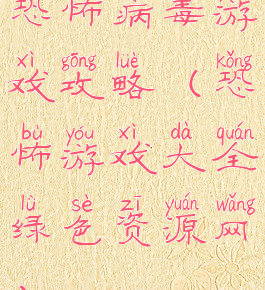 恐怖病毒游
xì gōng lüè kǒng
戏攻略(恐
bù yóu xì dà quán
怖游戏大全
lǜ sè zī yuán wǎng
绿色资源网
)